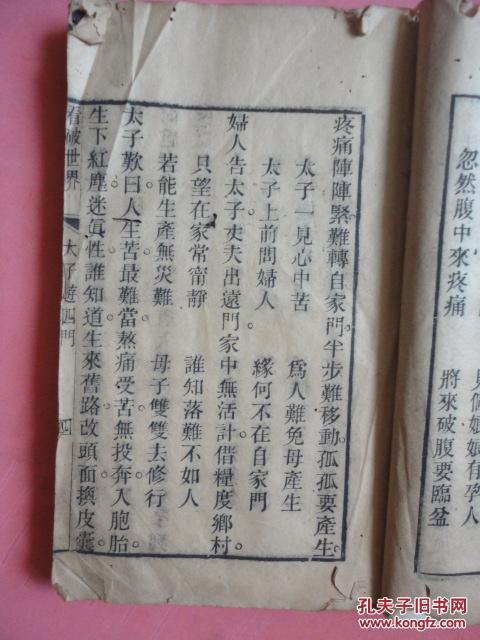 忽然腹中來疼痛
將來破腹要臨盆
疼痛陣陣緊難轉自家門半步難移動孤孤要產生
太子一見心中苦　為人難免母產生
太子上前問婦人　緣何不在自家門
婦人告太子丈夫出遠門家中無活計借糧度鄉村
只望在家常甯靜　誰知落難不如人
若能生產無災難　母子雙雙去修行
太子歎曰人生苦最難當熬痛受苦無投奔入胞胎
生下紅塵迷眞性誰知道生來舊路改頭面換皮囊
看破世界　太子遊四門　四
孔夫子旧书网
www.kongfz.com